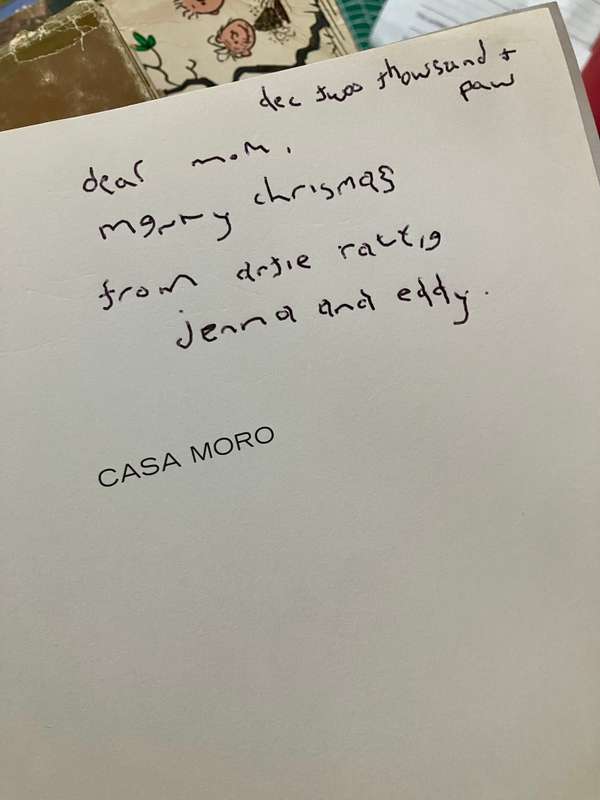 dec two thowsand +
paw
dear mom,
merry chrismas
from artie rattie
jenna and eddy.
CASA MORO